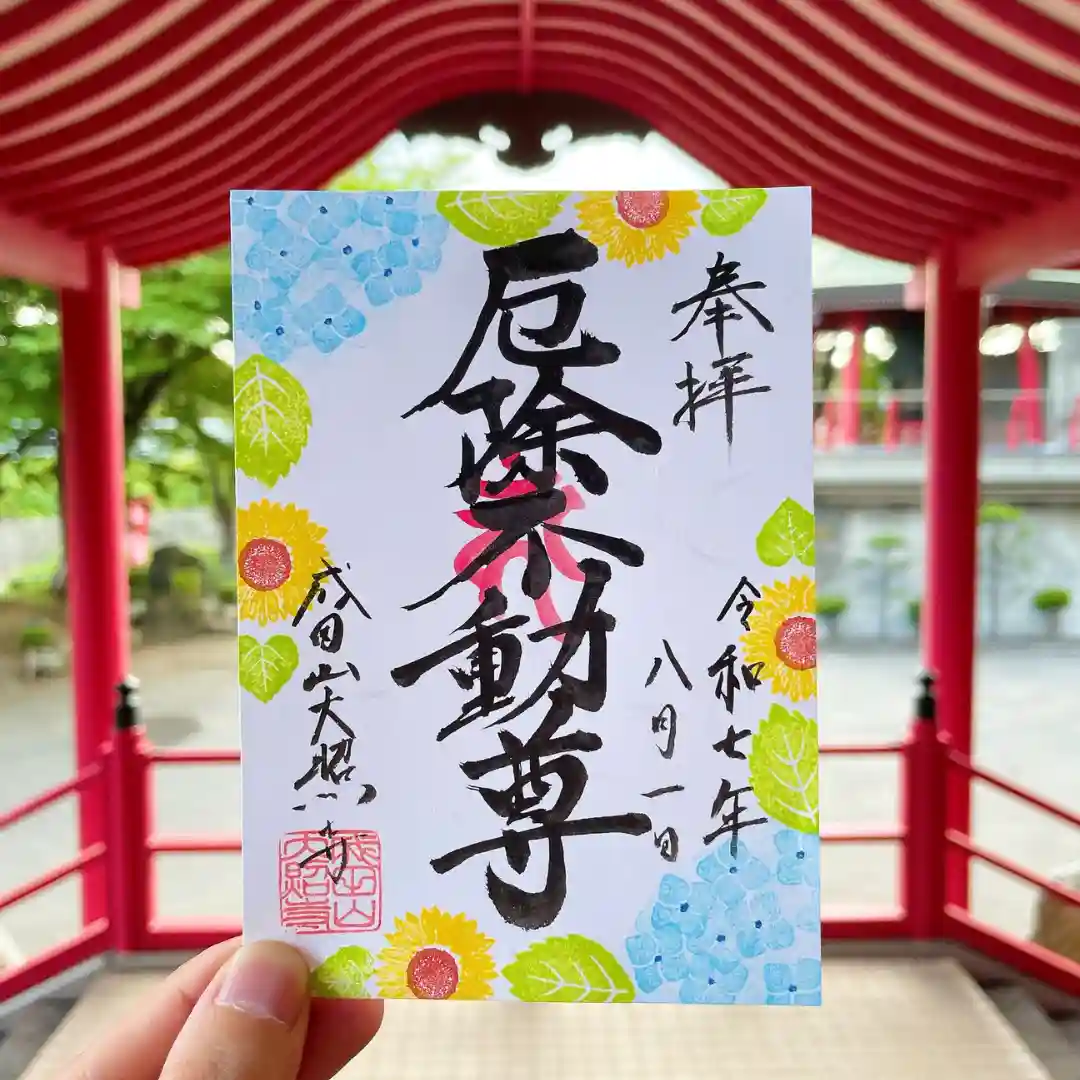 奉拝
令和七年
八月一日
厄除不動尊
成田山大照寺
成田山
大照寺